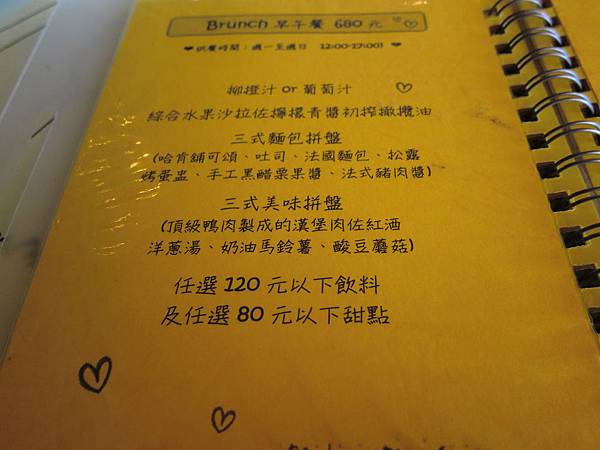 Brunch 早午餐 680 元
供餐時間：週一至週日 12:00-17:00)
柳橙汁 or 葡萄汁
綜合水果沙拉佐檸檬青醬初榨橄欖油
三式麵包拼盤
(哈肯舖可頌、吐司、法國麵包、松露
烤蛋盅、手工黑醋栗果醬、法式豬肉醬)
三式美味拼盤
(頂級鴨肉製成的漢堡肉佐紅酒
洋蔥湯、奶油馬鈴薯、酸豆蘑菇)
任選 120 元以下飲料
及任選 80 元以下甜點